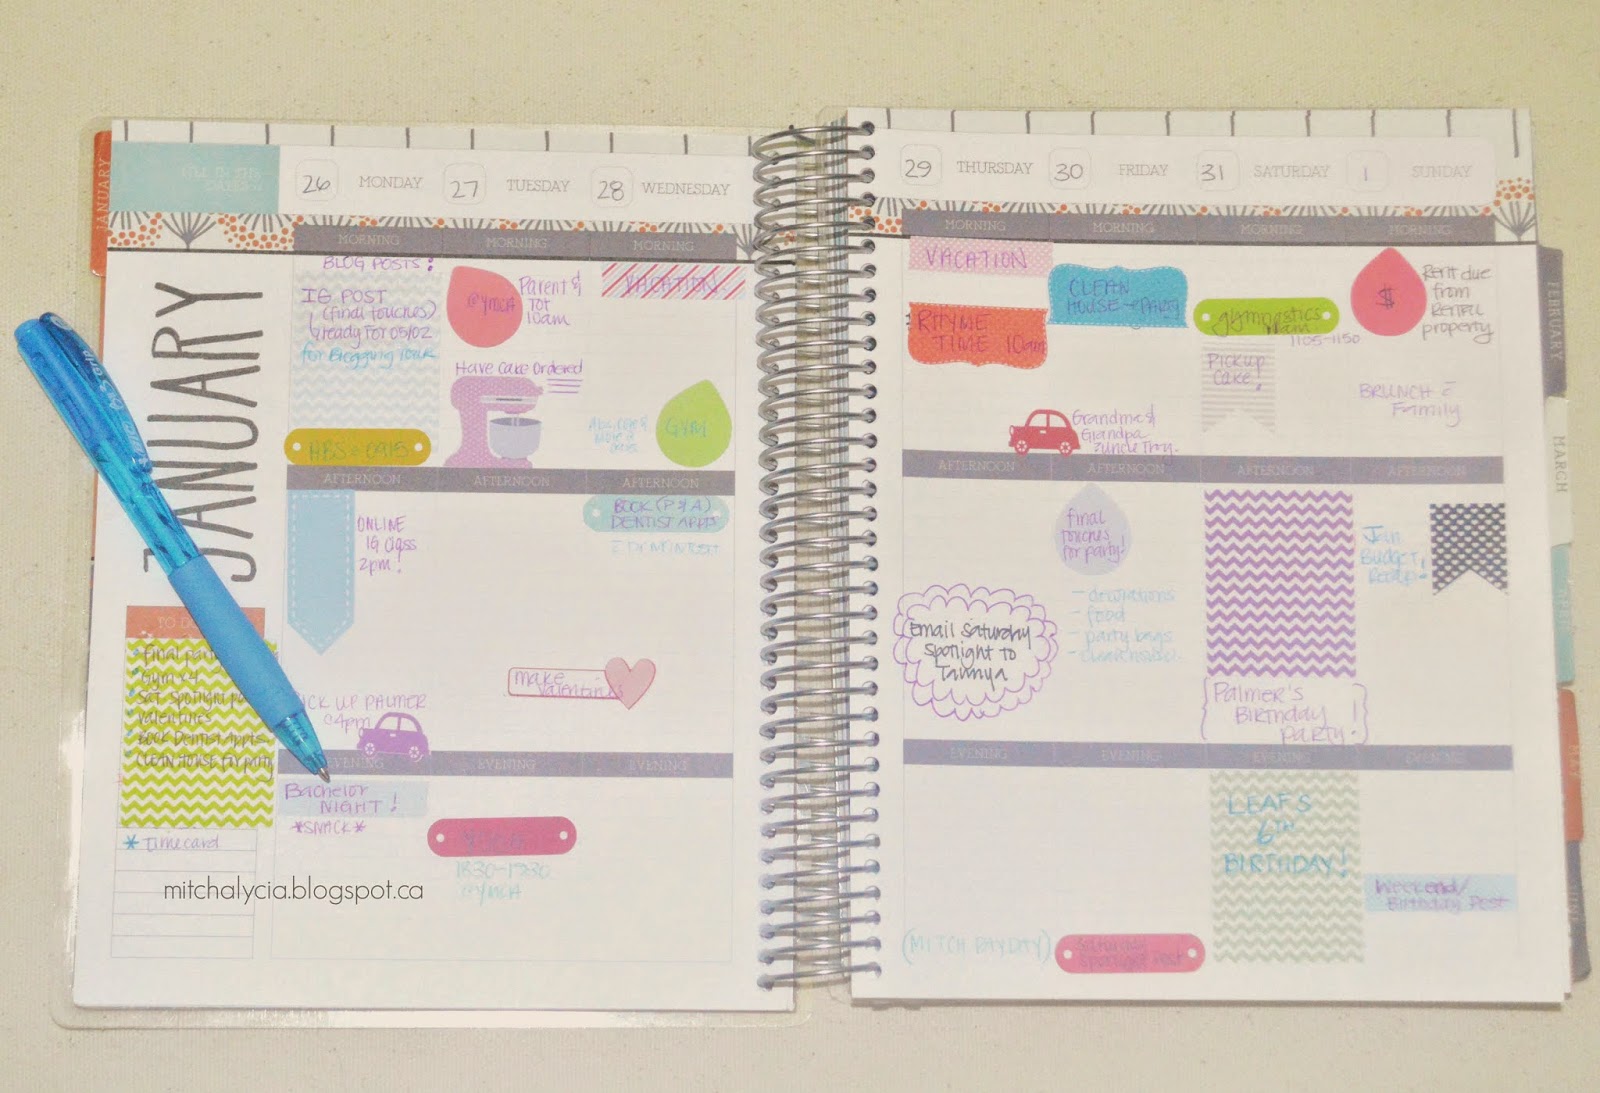 JANUARY
26 MONDAY
27 TUESDAY
28 WEDNESDAY
29 THURSDAY
30 FRIDAY
31 SATURDAY
1 SUNDAY
JANUARY
TO DO
Gym x4
Valentines
BOOK Dentist Appts
CLEAN HOUSE for party
* Timecard
MORNING
BLOG POSTS!
IG POST
(final touches)
ready for 05/02
for Blogging Tour
ABS @ 0915
AFTERNOON
ONLINE
IG Class
2pm!
PICK UP PALMER
@4pm
EVENING
Bachelor
NIGHT!
*SNACK*
MORNING
@YMCA
Parent &
Tot
10am
Have Cake Ordered
AFTERNOON
make
valentines
EVENING
1830-1930
@YMCA
MORNING
VACATION
GYM
AFTERNOON
BOOK (P & A)
DENTIST APPTS
EVENING
MORNING
VACATION
RHYME
TIME 10am
AFTERNOON
Email Saturday
Spotlight to
Tannya
EVENING
(MITCH PAYDAY)
MORNING
CLEAN
HOUSE → PARTY
Grandma &
Grandpa
Uncle Troy
AFTERNOON
final
touches
for party!
- decorations
- food
- party bags
- clean house!
EVENING
Saturday
Spotlight Post
MORNING
gymnastics
1105-1150
Pick up
Cake!
AFTERNOON
Palmer's
Birthday
Party!
EVENING
LEAF'S
6TH
BIRTHDAY!
MORNING
$
Rent due
from
Rental
property
BRUNCH c̄
Family
AFTERNOON
Jan
Budget
Recap!
EVENING
Weekend/
Birthday Post
FEBRUARY
MARCH
APRIL
MAY
mitchalycia.blogspot.ca